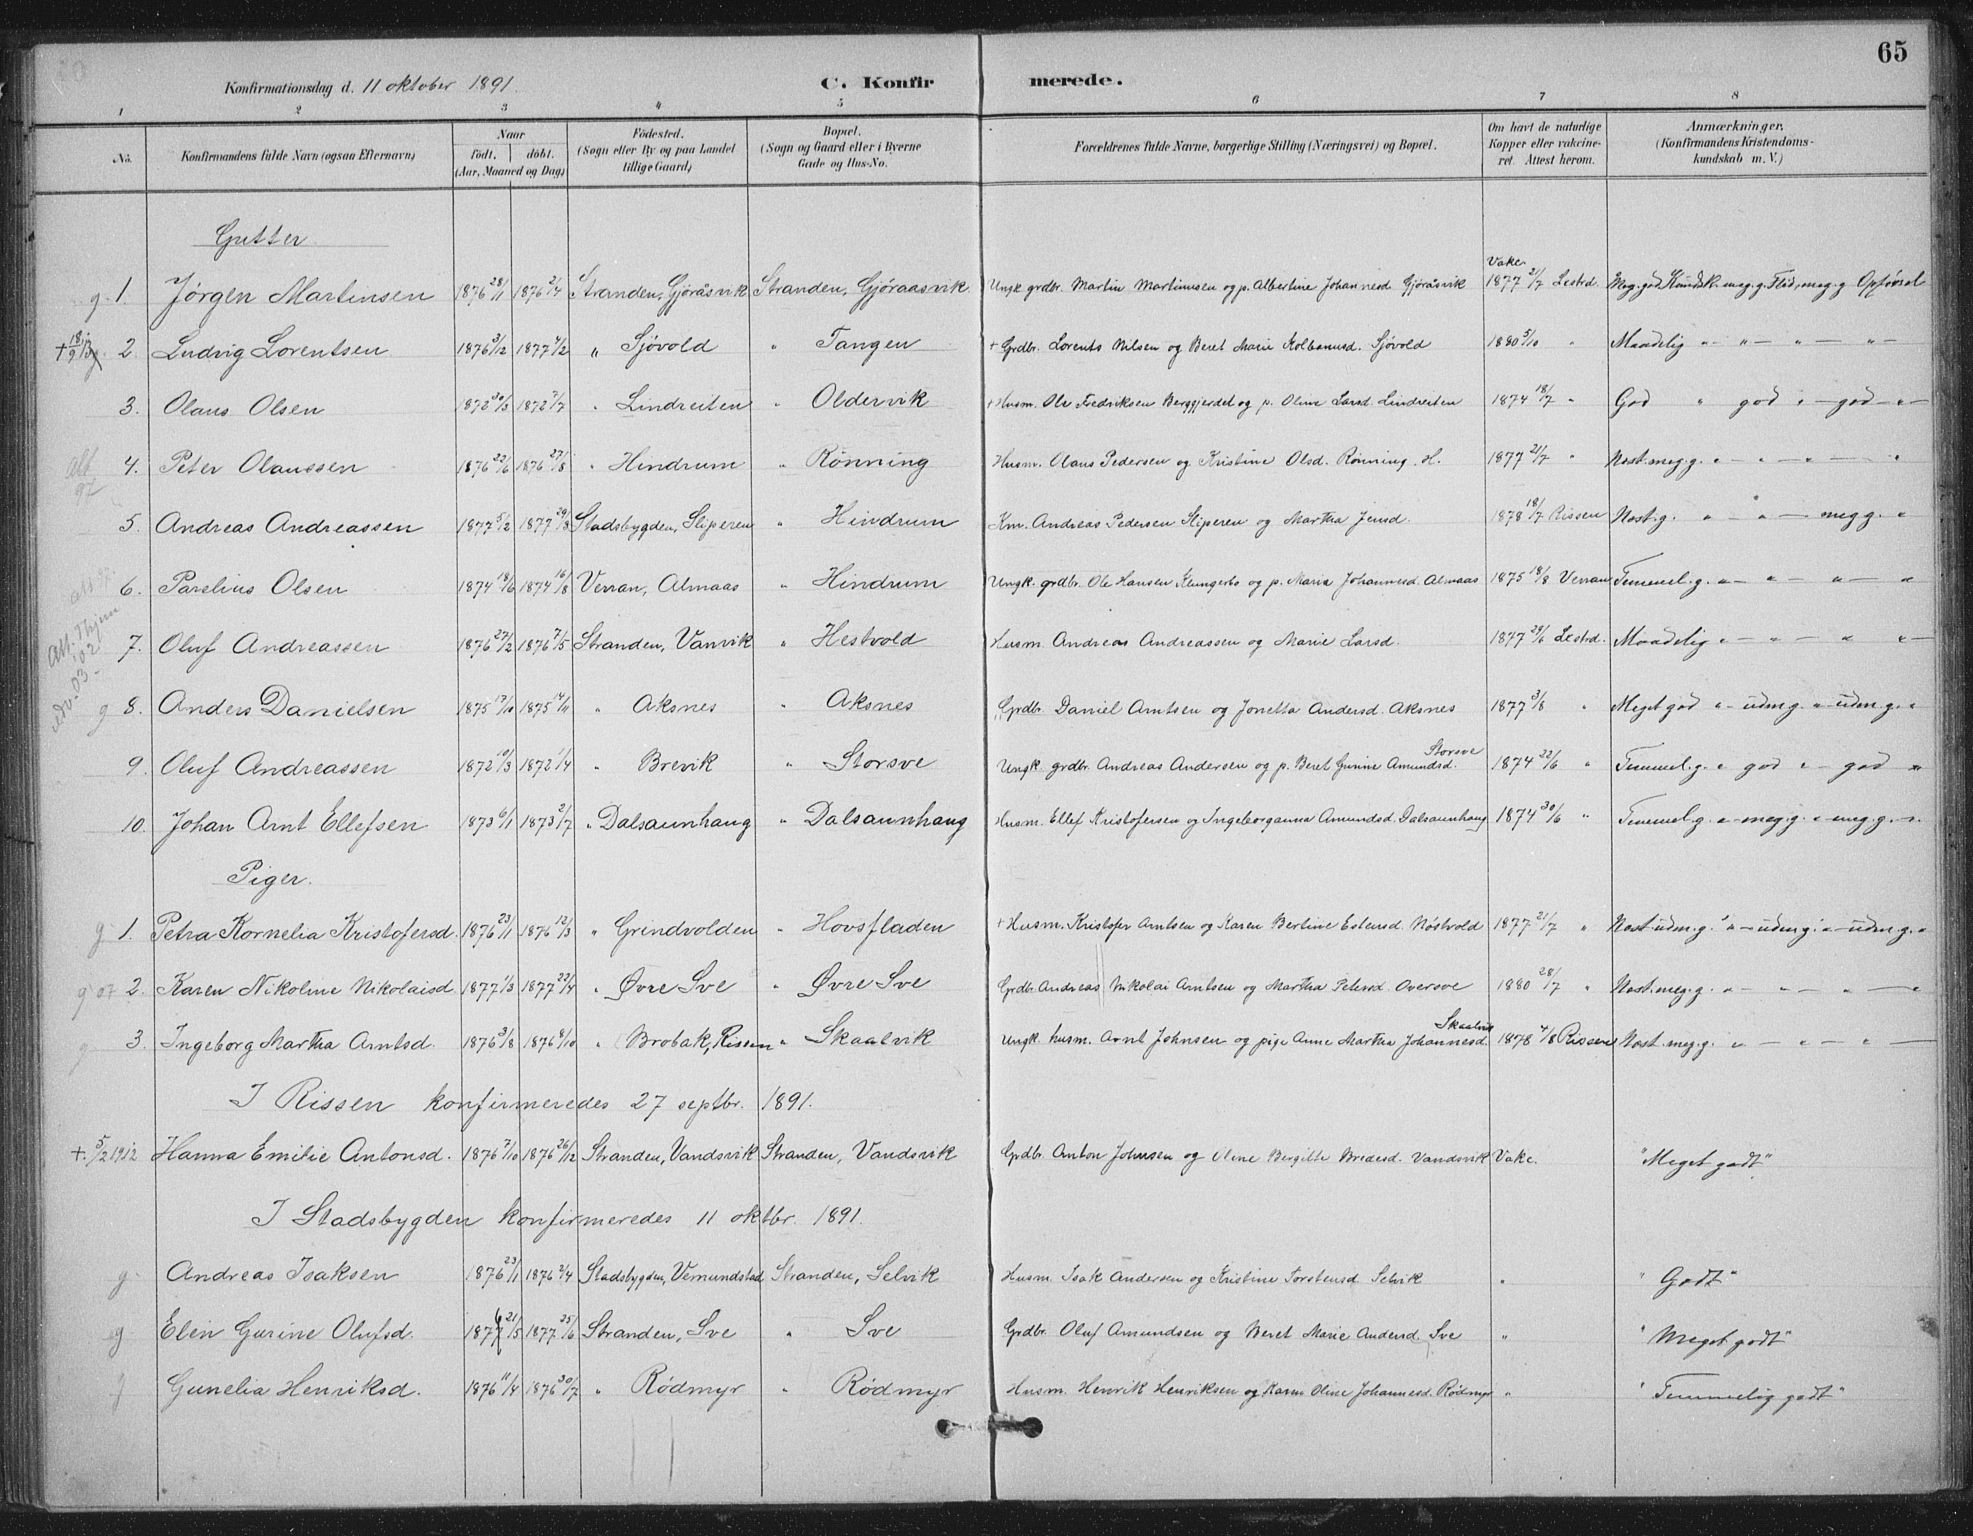 65
Konfirmationsdag d. 11 oktober 1891. C. Konfirmerede.
1 2 3 4 5 6 7 8
No. Konfirmandens fulde Navn (ogsaa Efternavn) Naar født, døbt. (Aar, Maaned og Dag) Fødested. (Sogn eller By og paa Landet tillige Gaard) Bopæl. (Sogn og Gaard eller i Byerne Gade og Hus-No. Forældrenes fulde Navne, borgerlige Stilling (Næringsvei) og Bopæl. Om havt de naturlige Kopper eller vaccineret. Attest herom. Anmærkninger. (Konfirmandens Kristendomskundskab m. V.)
Gutter
g. 1. Jørgen Martinsen 1876 28/1 1876 2/4 Stranden, Gjøråsvik Stranden, Gjøraasvik Ungk grdbr. Martin Martinusen og p. Albertine Johannesd Gjøråsvik Vakc. 1877 21/7 Lestrd. Meg. god Kundsk. meg. g. Flid, meg. g Opførsel
2. Ludvig Lorentsen 1876 3/12 1877 4/2 " Sjøvold " Tangen + Grdbr. Lorents Nilsen og Beret Marie Kolbanusd. Sjøvold 1880 5/10 " Maadelig " — " — " — " —
3. Olaus Olsen 1872 30/3 1872 7/7 " Lindreiten " Oldervik + Husm. Ole Fredriksen Berggjerdet og p. Oline Larsd. Lindreiten 1874 18/7 " God " god " — god — " —
4. Peter Olaussen 1876 22/6 1876 27/8 " Hindrum " Rønning Husm. Olaus Pedersen og Kristine Olsd. Rønning. H. 1877 21/7 " Næst. meg. g. " — " — " — "
5. Andreas Andreassen 1877 5/2 1877 29/3 Stadsbygden, Sliperen " Hindrum Km. Andreas Pedersen Sliperen og Martha Jensd. 1878 18/7 Rissen Næst. g. " — " — meg g. "
6. Parelius Olsen 1874 18/6 1874 16/8 Verran, Almaas " Hindrum Ungk. grdbr. Ole Hansen Klungerbo og p. Maria Johannesd. Almaas 1875 18/8 Verran Temmel. g. " — " — " — "
7. Oluf Andreassen 1876 27/2 1876 7/5 Stranden, Vanvik " Hestvold Husm. Andreas Andreassen og Marie Larsd. 1877 23/6 Lestrd. Maadelig " — " — " — " —
g 8. Anders Danielsen 1875 13/10 1875 14/11 " Aksnes " Aksnes Grdbr. Daniel Arntsen og Jonetta Andersd. Aksnes 1877 3/8 " Meget god " — udm g. " — udm. g. "
9. Oluf Andreassen 1872 10/3 1872 1/4 " Brevik " Storsve Ungk. grdbr. Andreas Andersen og p. Beret Gurine Amundsd. Storsve 1874 22/6 " Temmel. g. " god " — god "
10. Johan Arnt Ellefsen 1873 6/1 1873 2/7 " Dalsaunhaug " Dalsaunhaug Husm. Ellef Kristofersen og Ingeborganna Amundsd. Dalsaunhaug 1874 30/6 " Temmel. g. " — meg. g. " — meg. g. — "
Piger.
g 1. Petra Kornelia Kristofersd. 1876 23/1 1876 12/3 " Grindvolden " Hovsfladen + Husm. Kristofer Arntsen og Karen Bertine Estensd. Nøstvold 1877 21/7 " Næst. udm. g. " — udm g. " — udm g. "
g 07 2. Karen Nikoline Nikolaisd. 1877 1/3 1877 22/4 " Øvre Sve " Øvre Sve Grdbr. Andreas Nikolai Arntsen og Martha Petersd. Oversve 1880 28/7 " Næst. meg. g. " — " — " — "
g 3. Ingeborg Martha Arntsd. 1876 3/8 1876 8/10 " Brobak, Rissen " Skaalvik Ungk. husm. Arnt Johnsen og pige Anne Martha Johannesd. Skaalvik 1878 4/8 Rissen Næst. meg. g. " — " — " —
I Rissen konfirmeredes 27 septbr. 1891.
+ 5/2 1912 Hanna Emilie Antonsd. 1876 7/10 1876 26/12 Stranden, Vandsvik Stranden, Vandsvik Grdbr. Anton Johnsen og Oline Bergitte Bredesd. Vandsvik Vakc. "Meget godt"
I Stadsbygden konfirmeredes 11 oktbr. 1891.
g Andreas Isaksen 1876 23/1 1876 2/4 Stadsbygden, Vemundstad Stranden, Selvik Husm. Isak Andersen og Kristine Torstensd. Selvik " "Godt"
g Elen Gurine Olufsd. 1876 21/5 1877 25/6 Stranden, Sve " Sve Grdbr. Oluf Amundsen og Beret Marie Andersd. Sve " "Meget godt"
g Gunelia Henriksd. 1876 11/4 1876 30/7 " Rødmyr " Rødmyr Husm. Henrik Henriksen og Karen Oline Johannesd. Rødmyr " "Temmelig godt"